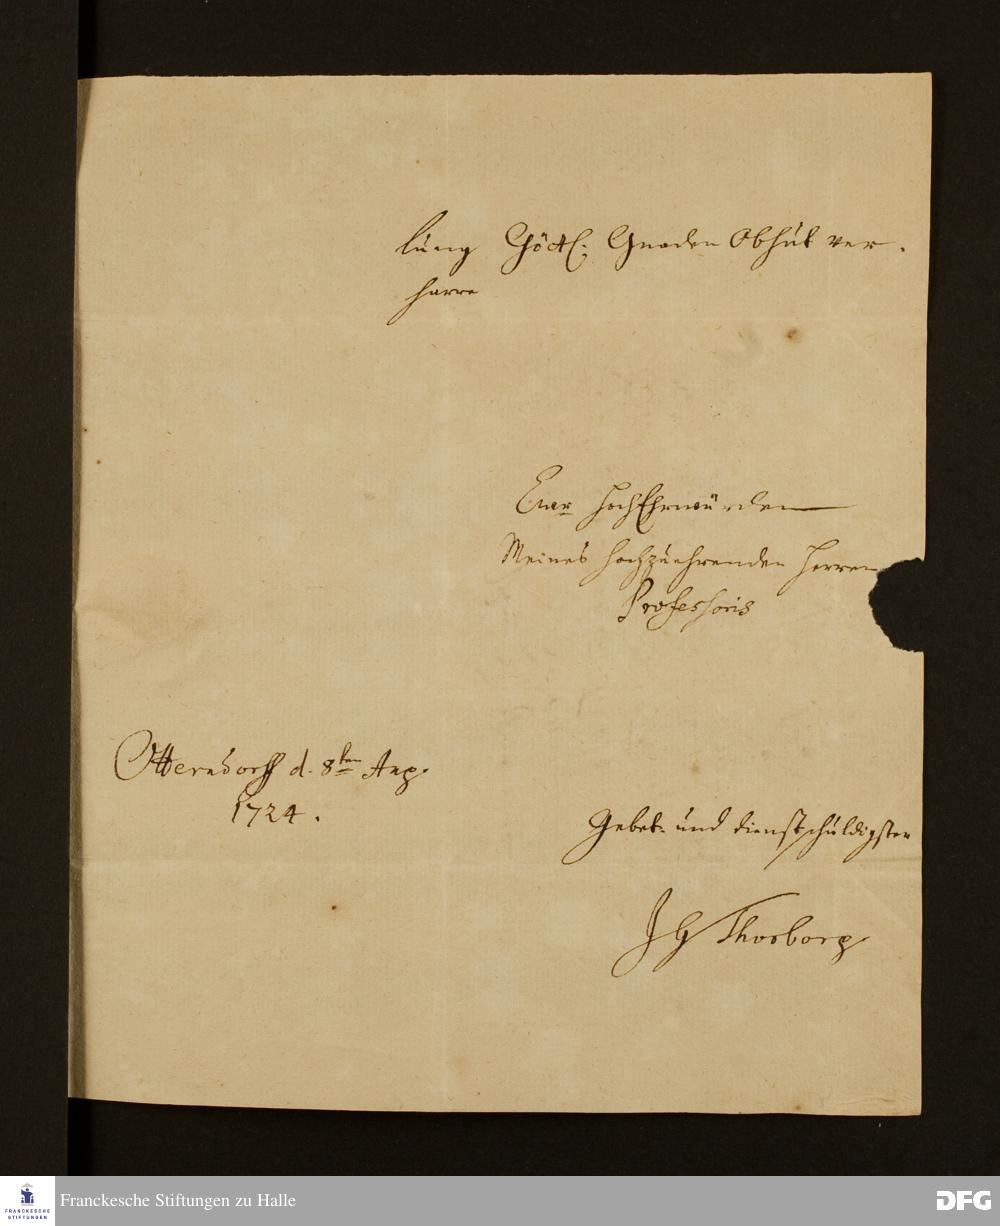 lung Göttl. Gnaden Obhut ver-
harre
Ewr HochEhrwürden
Meines hochzuehrenden Herren
Professoris
Otterndorff d. 8ten Aug.
1724.
Gebet- und dienstschuldigster
J G Thorborg
FRANCKESCHE
STIFTUNGEN
Franckesche Stiftungen zu Halle
DFG